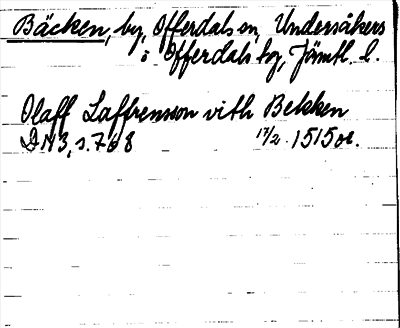 Bäcken, by, Offerdals sn, Undersåkers
o Offerdals tg, Jämtl. l.
Olaff Laffrensson vith Bekken
DN3, s. 768 17/2 1515 or.